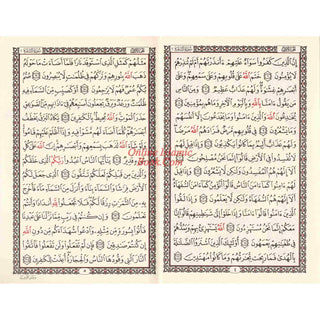 إِنَّ ٱلَّذِينَ كَفَرُوا۟ سَوَآءٌ عَلَيْهِمْ ءَأَنذَرْتَهُمْ أَمْ لَمْ تُنذِرْهُمْ
لَا يُؤْمِنُونَ ٦ خَتَمَ ٱللَّهُ عَلَىٰ قُلُوبِهِمْ وَعَلَىٰ سَمْعِهِمْ وَعَلَىٰٓ
أَبْصَٰرِهِمْ غِشَٰوَةٌ وَلَهُمْ عَذَابٌ عَظِيمٌ ٧ وَمِنَ ٱلنَّاسِ
مَن يَقُولُ ءَامَنَّا بِٱللَّهِ وَبِٱلْيَوْمِ ٱلْءَاخِرِ وَمَا هُم بِمُؤْمِنِينَ ٨
يُخَٰدِعُونَ ٱللَّهَ وَٱلَّذِينَ ءَامَنُوا۟ وَمَا يَخْدَعُونَ إِلَّآ أَنفُسَهُمْ
وَمَا يَشْعُرُونَ ٩ فِى قُلُوبِهِم مَّرَضٌ فَزَادَهُمُ ٱللَّهُ مَرَضًا
وَلَهُمْ عَذَابٌ أَلِيمٌۢ بِمَا كَانُوا۟ يَكْذِبُونَ ١٠ وَإِذَا قِيلَ لَهُمْ
لَا تُفْسِدُوا۟ فِى ٱلْأَرْضِ قَالُوٓا۟ إِنَّمَا نَحْنُ مُصْلِحُونَ ١١
أَلَآ إِنَّهُمْ هُمُ ٱلْمُفْسِدُونَ وَلَٰكِن لَّا يَشْعُرُونَ ١٢ وَإِذَا قِيلَ
لَهُمْ ءَامِنُوا۟ كَمَآ ءَامَنَ ٱلنَّاسُ قَالُوٓا۟ أَنُؤْمِنُ كَمَآ ءَامَنَ ٱلسُّفَهَآءُ
أَلَآ إِنَّهُمْ هُمُ ٱلسُّفَهَآءُ وَلَٰكِن لَّا يَعْلَمُونَ ١٣ وَإِذَا لَقُوا۟ ٱلَّذِينَ
ءَامَنُوا۟ قَالُوٓا۟ ءَامَنَّا وَإِذَا خَلَوْا۟ إِلَىٰ شَيَٰطِينِهِمْ قَالُوٓا۟ إِنَّا مَعَكُمْ
إِنَّمَا نَحْنُ مُسْتَهْزِءُونَ ١٤ ٱللَّهُ يَسْتَهْزِئُ بِهِمْ وَيَمُدُّهُمْ
فِى طُغْيَٰنِهِمْ يَعْمَهُونَ ١٥ أُو۟لَٰٓئِكَ ٱلَّذِينَ ٱشْتَرَوُا۟ ٱلضَّلَٰلَةَ
بِٱلْهُدَىٰ فَمَا رَبِحَت تِّجَٰرَتُهُمْ وَمَا كَانُوا۟ مُهْتَدِينَ ١٦
مَثَلُهُمْ كَمَثَلِ ٱلَّذِى ٱسْتَوْقَدَ نَارًا فَلَمَّآ أَضَآءَتْ مَا حَوْلَهُۥ
ذَهَبَ ٱللَّهُ بِنُورِهِمْ وَتَرَكَهُمْ فِى ظُلُمَٰتٍ لَّا يُبْصِرُونَ ١٧
صُمٌّۢ بُكْمٌ عُمْىٌ فَهُمْ لَا يَرْجِعُونَ ١٨ أَوْ كَصَيِّبٍ مِّنَ ٱلسَّمَآءِ فِيهِ
ظُلُمَٰتٌ وَرَعْدٌ وَبَرْقٌ يَجْعَلُونَ أَصَٰبِعَهُمْ فِىٓ ءَاذَانِهِم مِّنَ ٱلصَّوَٰعِقِ
حَذَرَ ٱلْمَوْتِ وَٱللَّهُ مُحِيطٌۢ بِٱلْكَٰفِرِينَ ١٩ يَكَادُ ٱلْبَرْقُ يَخْطَفُ
أَبْصَٰرَهُمْ كُلَّمَآ أَضَآءَ لَهُم مَّشَوْا۟ فِيهِ وَإِذَآ أَظْلَمَ عَلَيْهِمْ قَامُوا۟
وَلَوْ شَآءَ ٱللَّهُ لَذَهَبَ بِسَمْعِهِمْ وَأَبْصَٰرِهِمْ إِنَّ ٱللَّهَ عَلَىٰ كُلِّ
شَىْءٍ قَدِيرٌ ٢٠ يَٰٓأَيُّهَا ٱلنَّاسُ ٱعْبُدُوا۟ رَبَّكُمُ ٱلَّذِى خَلَقَكُمْ
وَٱلَّذِينَ مِن قَبْلِكُمْ لَعَلَّكُمْ تَتَّقُونَ ٢١ ٱلَّذِى جَعَلَ لَكُمُ
ٱلْأَرْضَ فِرَٰشًا وَٱلسَّمَآءَ بِنَآءً وَأَنزَلَ مِنَ ٱلسَّمَآءِ مَآءً فَأَخْرَجَ
بِهِۦ مِنَ ٱلثَّمَرَٰتِ رِزْقًا لَّكُمْ فَلَا تَجْعَلُوا۟ لِلَّهِ أَندَادًا وَأَنتُمْ
تَعْلَمُونَ ٢٢ وَإِن كُنتُمْ فِى رَيْبٍ مِّمَّا نَزَّلْنَا عَلَىٰ عَبْدِنَا
فَأْتُوا۟ بِسُورَةٍ مِّن مِّثْلِهِۦ وَٱدْعُوا۟ شُهَدَآءَكُم مِّن دُونِ ٱللَّهِ
إِن كُنتُمْ صَٰدِقِينَ ٢٣ فَإِن لَّمْ تَفْعَلُوا۟ وَلَن تَفْعَلُوا۟ فَٱتَّقُوا۟
ٱلنَّارَ ٱلَّتِى وَقُودُهَا ٱلنَّاسُ وَٱلْحِجَارَةُ أُعِدَّتْ لِلْكَٰفِرِينَ ٢٤
Online Islamic
Book.com